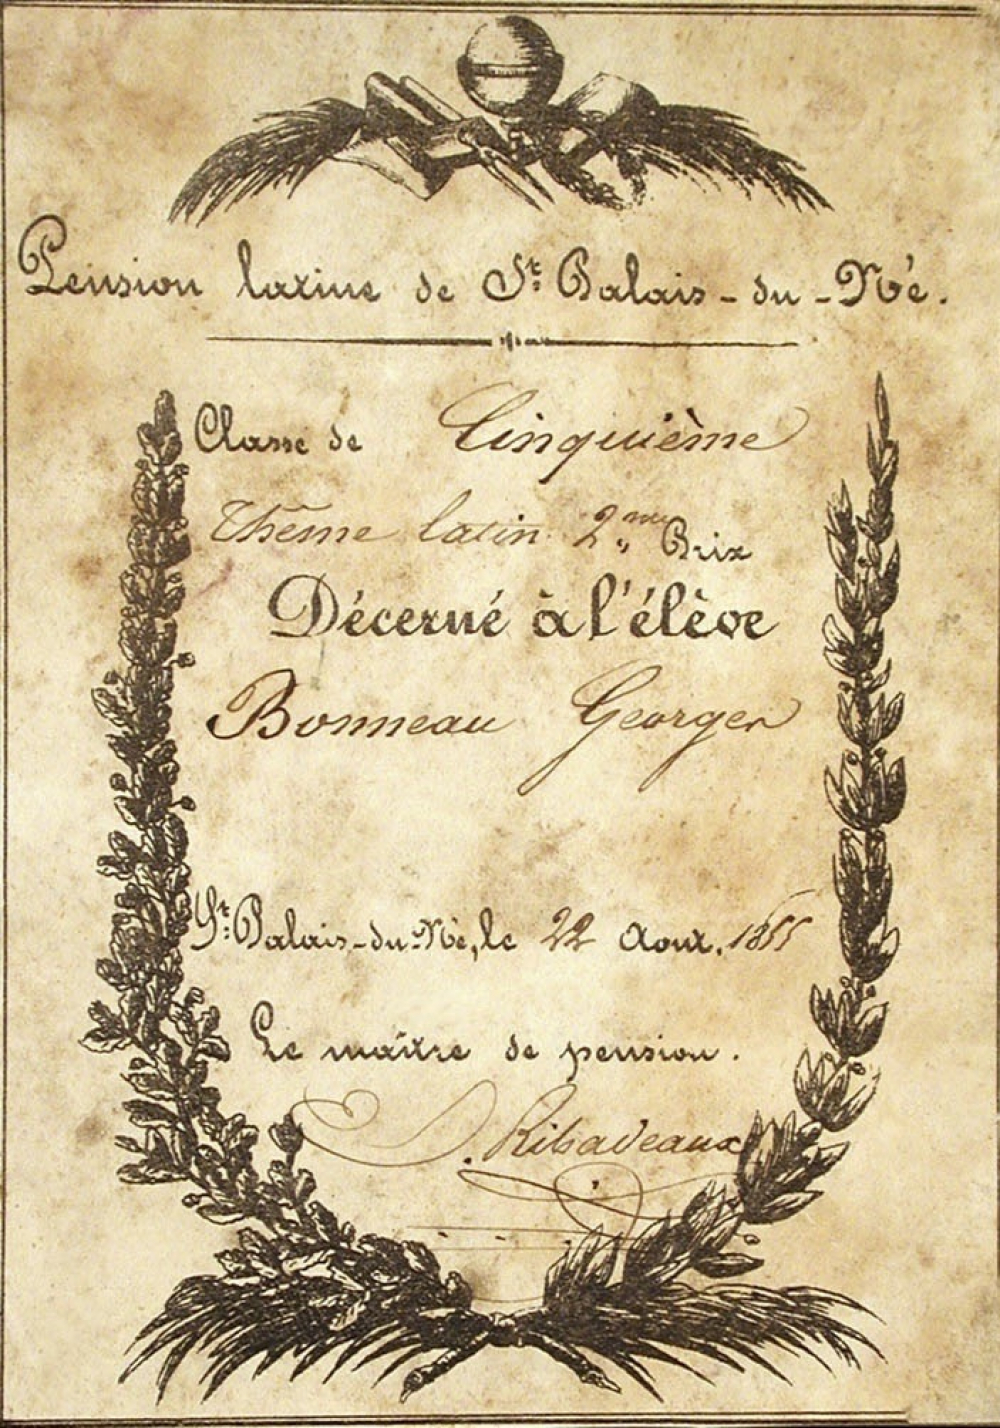 Pension latine de St. Palais-du-Né.
Classe de Cinquième
Thême latin 2me Prix
Décerné à l'élève
Bonneau Georges
St. Palais-du-Né, le 22 Aout, 1855
Le maître de pension.
S. Ribadeaux